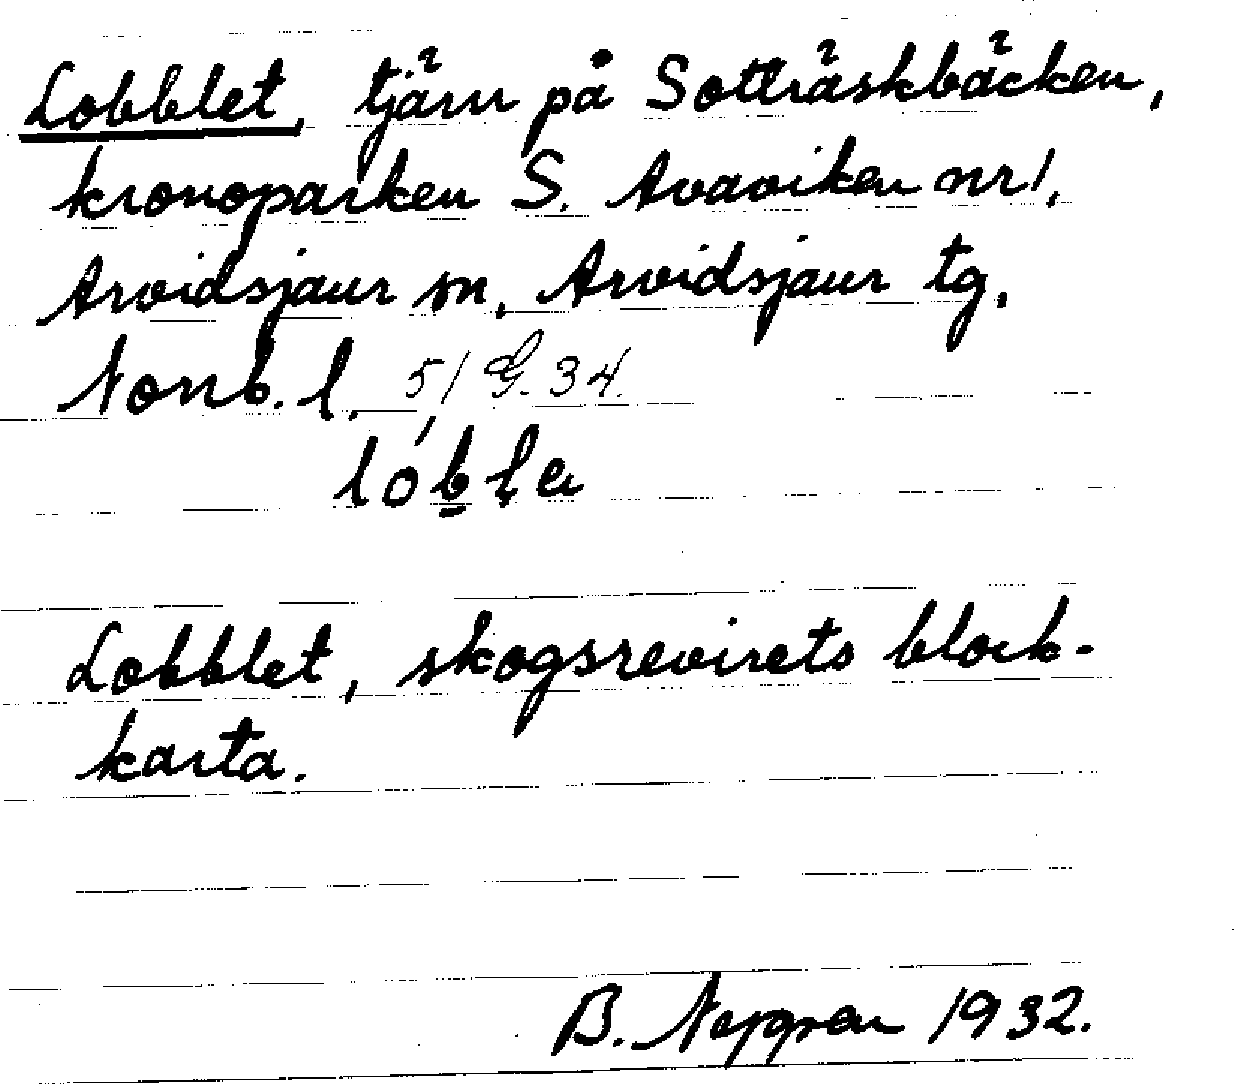 Lobblet, tjärn på Sotträskbäcken,
kronoparken S. Avaviken nr 1,
Arvidsjaur sn, Arvidsjaur tg,
Norrb. l. 51 G. 34.
Lobblet, skogsrevirets block-
karta.
B. 1932.